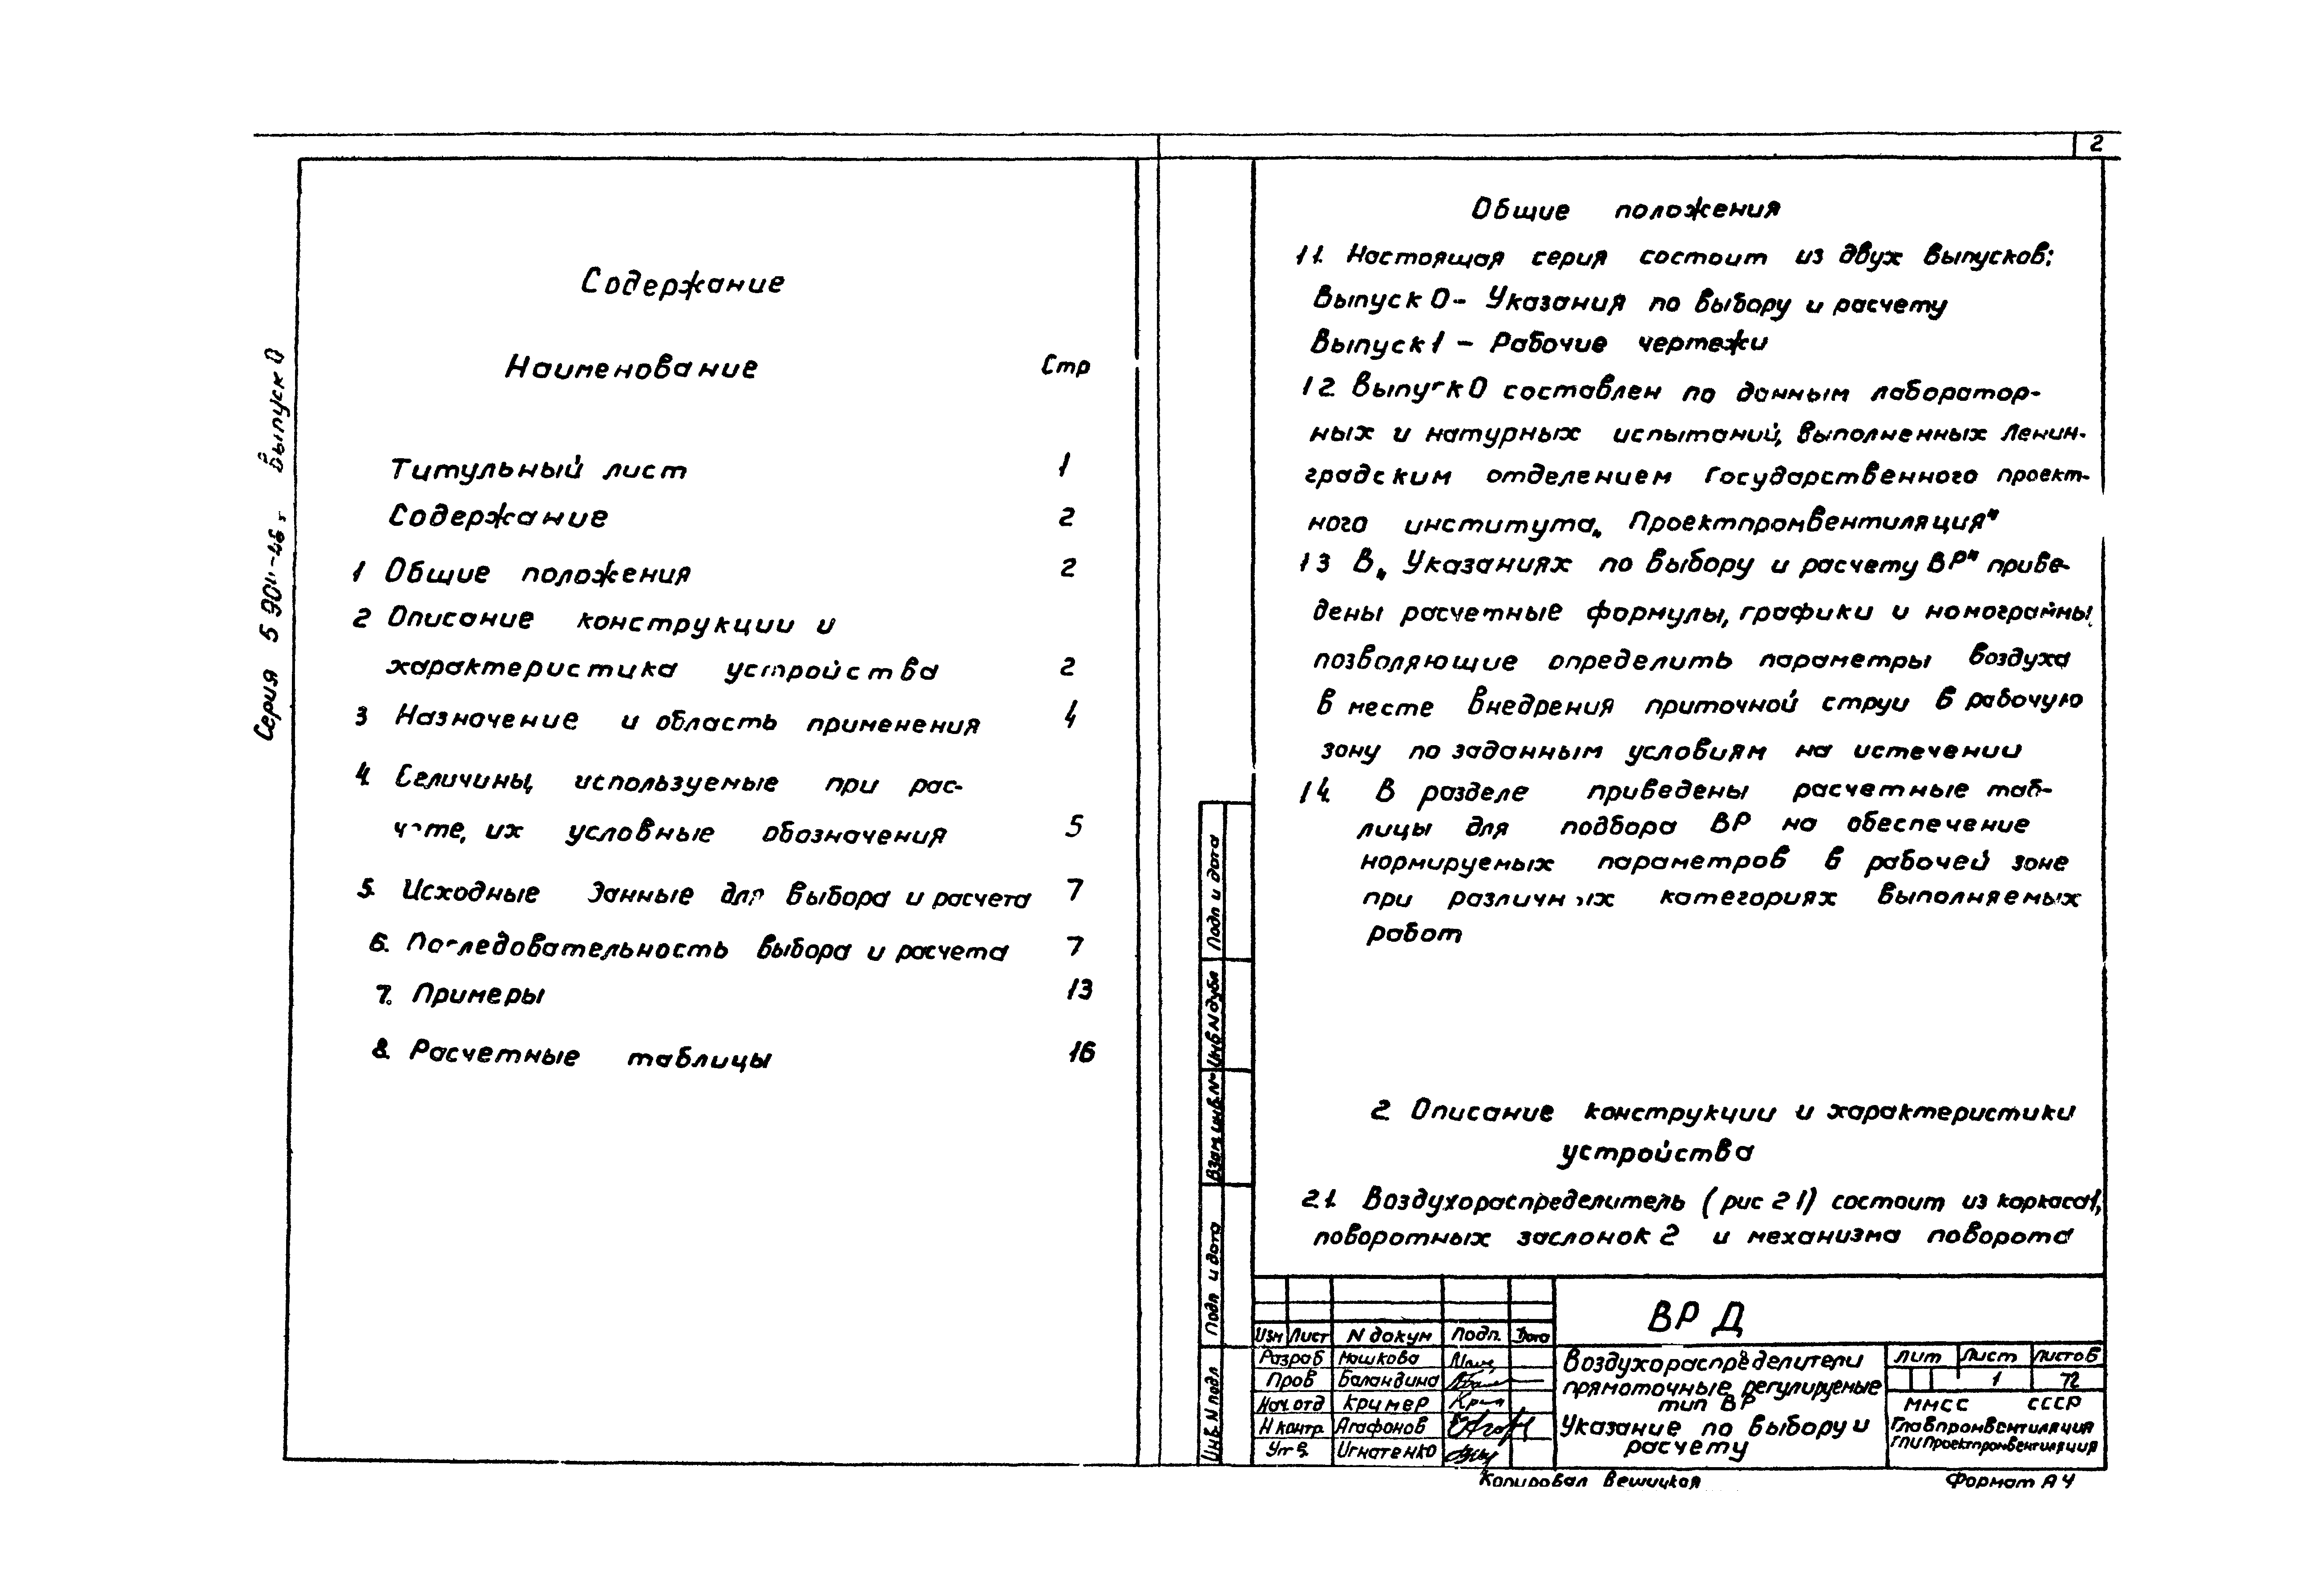 2
Серия 5 904-46 Выпуск 0
Содержание
Наименование Стр
Титульный лист 1
Содержание 2
1 Общие положения 2
2 Описание конструкции и
характеристика устройства 2
3 Назначение и область применения 4
4. Величины, используемые при рас-
чете, их условные обозначения 5
5. Исходные данные для выбора и расчета 7
6. Последовательность выбора и расчета 7
7. Примеры 13
8. Расчетные таблицы 16
Общие положения
1 1. Настоящая серия состоит из двух выпусков:
Выпуск 0 - Указания по выбору и расчету
Выпуск 1 - Рабочие чертежи
1 2 Выпуск 0 составлен по данным лаборатор-
ных и натурных испытаний, выполненных Ленин-
градским отделением Государственного проект-
ного института „Проектпромвентиляция"
1 3 В „Указаниях по выбору и расчету ВР" приве-
дены расчетные формулы, графики и номограммы,
позволяющие определить параметры воздуха
в месте внедрения приточной струи в рабочую
зону по заданным условиям на истечении
1 4. В разделе приведены расчетные таб-
лицы для подбора ВР на обеспечение
нормируемых параметров в рабочей зоне
при различных категориях выполняемых
работ
2 Описание конструкции и характеристики
устройства
2.1. Воздухораспределитель (рис 2 1) состоит из каркаса 1,
поворотных заслонок 2 и механизма поворота
Подп и дата
Инв N дубл
Взам инв. N°
Подп и дата
Инв. N подл
ВР Д
Изм Лист N докум Подп. Дата
Разраб Машкова
Пров Баландина
Нач. отд Кример
Н контр. Агафонов
Утв Игнатенко
Воздухораспределители
прямоточные регулируемые
тип ВР
Указание по выбору и
расчету
Лит Лист Листов
1 72
ММСС СССР
Главпромвентиляция
ГПИ Проектпромвентиляция
Копировал Вешицкая Формат А4